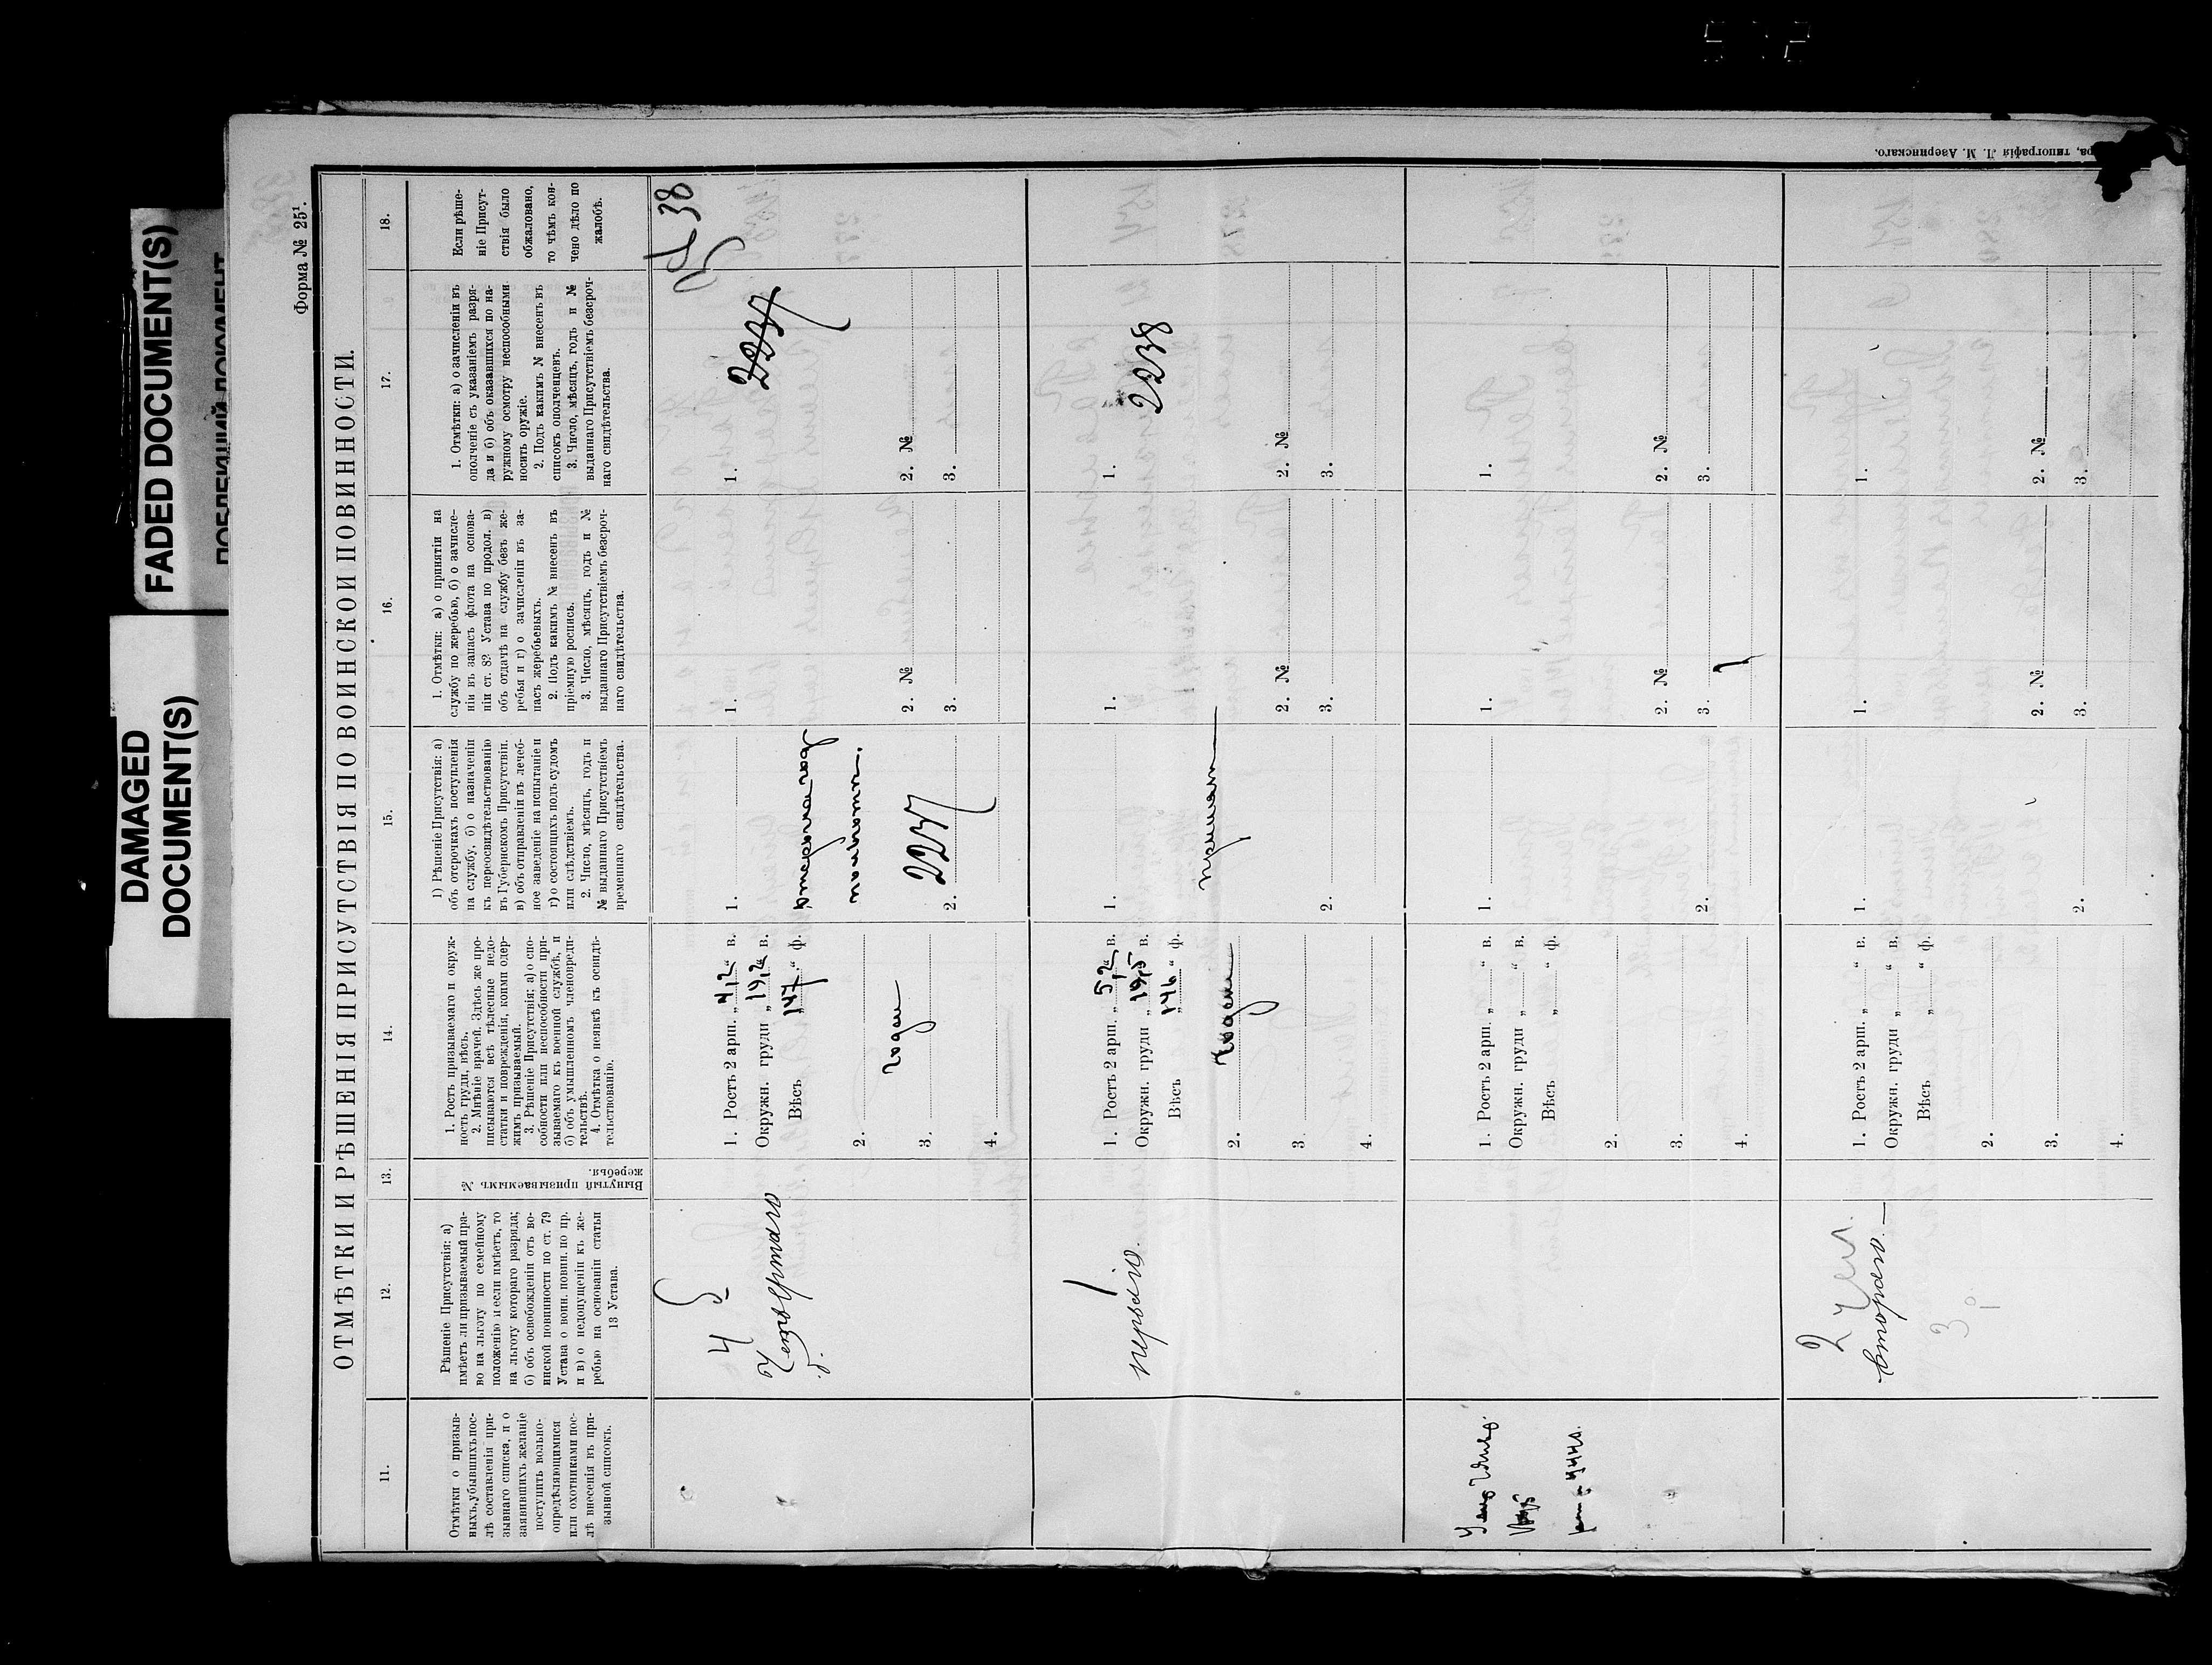 FADED DOCUMENT(S)
DAMAGED
DOCUMENT(S)
Форма № 25¹.
ОТМѢТКИ И РѢШЕНІЯ ПРИСУТСТВІЯ ПО ВОИНСКОЙ ПОВИННОСТИ.
11.
Отмѣтки о призыв-
ныхъ, убывшихъ пос-
лѣ составленія при-
зывнаго списка, и о
заявившихъ желаніе
поступить вольно-
опредѣляющимися
или охотниками пос-
лѣ внесенія въ при-
зывной списокъ.
12.
Рѣшеніе Присутствія: а)
имѣетъ ли призываемый пра-
во на льготу по семейному
положенію и если имѣетъ, то
на льготу котораго разряда;
б) объ освобожденіи отъ во-
инской повинности по ст. 79
Устава о воин. повин. по пр.
и в) о недопущеніи къ же-
ребью на основаніи статьи
13 Устава.
13.
Вынутый призываемымъ №
жеребья.
14.
1. Ростъ призываемаго и окруж-
ность груди, вѣсъ.
2. Мнѣніе врачей. Здѣсь же про-
писываются всѣ тѣлесные недо-
статки и поврежденія, коими одер-
жимъ призываемый.
3. Рѣшеніе Присутствія: а) о спо-
собности или неспособности при-
зываемаго къ военной службѣ, и
б) объ умышленномъ членовреди-
тельствѣ.
4. Отмѣтка о неявкѣ къ освидѣ-
тельствованію.
15.
1) Рѣшеніе Присутствія: а)
объ отсрочкахъ поступленія
на службу, б) о назначеніи
къ переосвидѣтельствованію
въ Губернскомъ Присутствіи.
в) объ отправленіи въ лечеб-
ное заведеніе на испытаніе и
г) о состоящихъ подъ судомъ
или слѣдствіемъ.
2. Число, мѣсяцъ, годъ и
№ выданнаго Присутствіемъ
временнаго свидѣтельства.
16.
1. Отмѣтки: а) о принятіи на
службу по жеребью, б) о зачисле-
ніи въ запасъ флота на основа-
ніи ст. 82 Устава по продол. в)
объ отдачѣ на службу безъ же-
ребья и г) о зачисленіи въ за-
пасъ жеребьевыхъ.
2. Подъ какимъ № внесенъ въ
пріемную роспись.
3. Число, мѣсяцъ, годъ и №
выданнаго Присутствіемъ безсроч-
наго свидѣтельства.
17.
1. Отмѣтки: а) о зачисленіи въ
ополченіе съ указаніемъ разря-
да и б) объ оказавшихся по на-
ружному осмотру неспособными
носить оружіе.
2. Подъ какимъ № внесенъ въ
списокъ ополченцевъ.
3. Число, мѣсяцъ, годъ и №
выданнаго Присутствіемъ безсроч-
наго свидѣтельства.
18.
Если рѣше-
ніе Присут-
ствія было
обжаловано,
то чѣмъ кон-
чено дѣло по
жалобѣ.
4
Четвертаго
1. Ростъ 2 арш. „ 4,2 “ в.
Окружн. груди „ 19,2 “ в.
Вѣсъ „ 147 “ ф.
2.
годен
3.
4.
1.
2237
2.
1.
2. №
3.
1.
2237
2. №
3.
38
1
перваго.
1. Ростъ 2 арш. „ 5,2 “ в.
Окружн. груди „ 19,5 “ в.
Вѣсъ „ 146 “ ф.
2. годен
3.
4.
1.
принят
2.
1.
2. №
3.
1.
2238
2. №
3.
1. Ростъ 2 арш. „ “ в.
Окружн. груди „ “ в.
Вѣсъ „ “ ф.
2.
3.
4.
1.
2.
1.
2. №
3.
1.
2. №
3.
2
второго.
3
1. Ростъ 2 арш. „ “ в.
Окружн. груди „ “ в.
Вѣсъ „ “ ф.
2.
3.
4.
1.
2.
1.
2. №
3.
1.
2. №
3.
типографія Л. М. Азеринскаго.